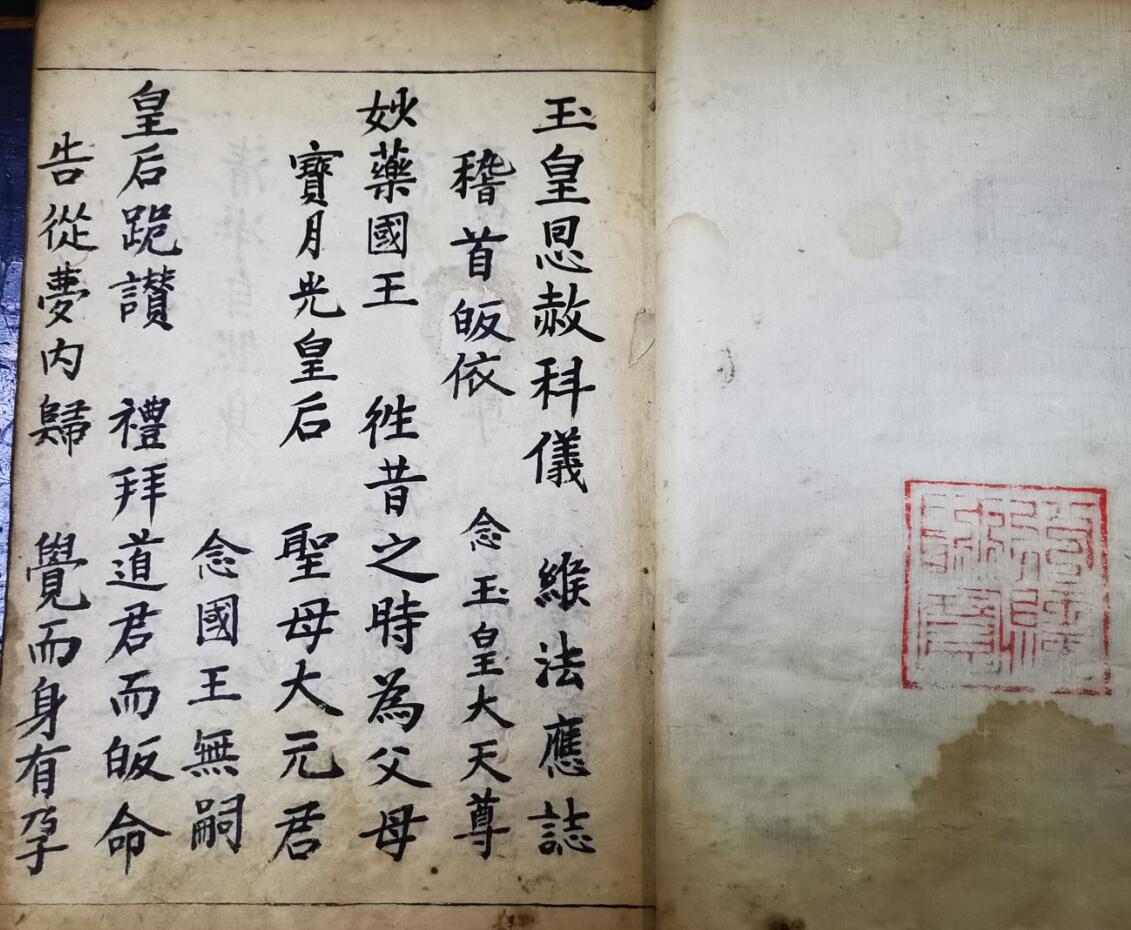 玉皇恩赦科儀 維法應誌
稽首皈依 念玉皇大天尊
妙藥國王 徃昔之時為父母
寶月光皇后 聖母大元君
念國王無嗣
皇后跪讃 禮拜道君而皈命
告從夢內歸 覺而身有孕